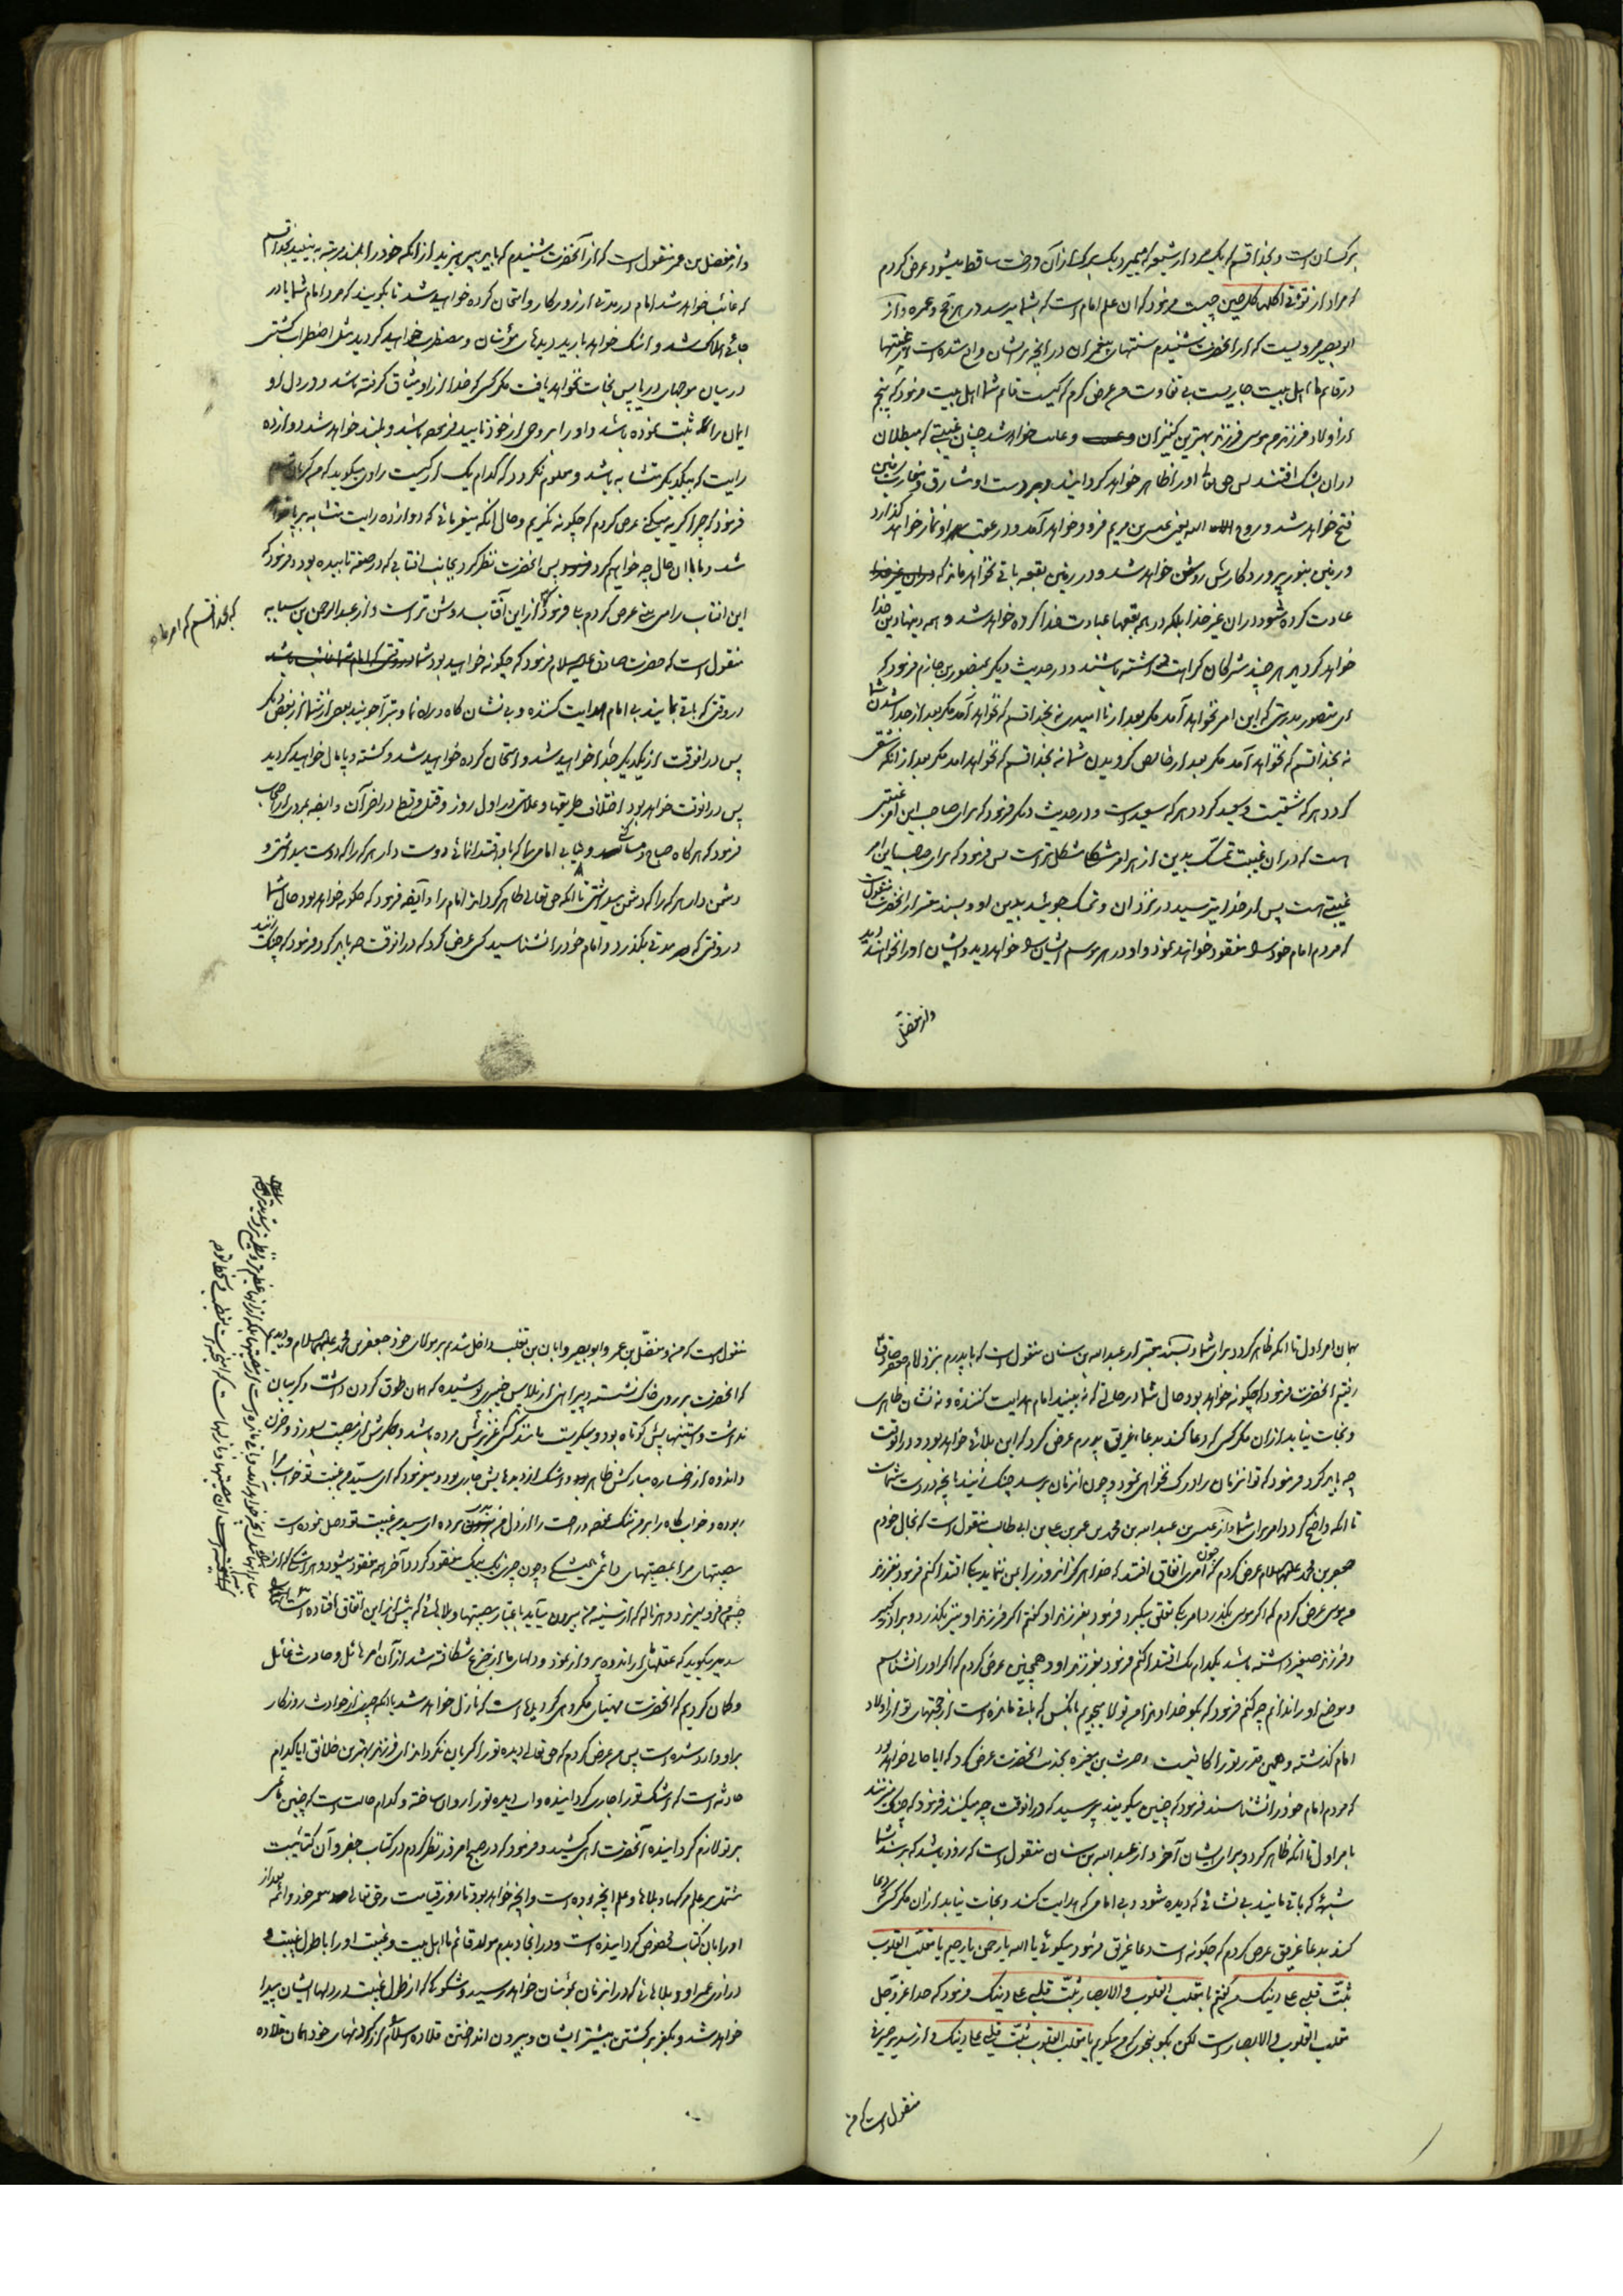 برکسان است و بخدا قسم که یک مرد از شیعه که بمیرد یک برک از آن درخت ساقط میشود عرض کردم
که مراد از تؤتی اکلها کل حین چیست فرمود که ان علم امام است که بشما میرسد در هر حج و عمره و از
ابو بصیر مرویست که از انحضرت شنیدم سنتهای پیغمبران در انچه بر ایشان واقع شده است از غیبتها
در قائم ما اهل بیت جاریست بی تفاوت من عرض کردم که کیست قائم شما اهل بیت فرمود که پنجم
از اولاد فرزندم موسی فرزند بهترین کنیزان و غایب خواهد شد چنان غیبتی که مبطلان
در ان بشک افتند پس حق تعالی او را ظاهر خواهد کردانید و بر دست او مشارق و مغارب زمین
فتح خواهد شد و روح الله یعنی عیسی بن مریم فرود خواهد آمد و در عقب او نماز خواهد کذارد
و زمین بنور پروردکارش روشن خواهد شد و در زمین بقعه باقی نخواهد ماند که
عبادت کرده شود در ان غیر خدا بلکه در همه بقعها عبادت خدا کرده خواهد شد و همه دینها دین خدا
خواهد کردید هر چند مشرکان کراهت داشته باشند و در حدیث دیکر بمنصور بن حازم فرمود که
ای منصور بدرستی که این امر نخواهد آمد مکر بعد از نا امیدی نه بخدا قسم که نخواهد آمد مکر بعد از جدا شدن شما
نه بخدا قسم که نخواهد آمد مکر بعد از خالص کردیدن شما نه بخدا قسم که نخواهد امد مکر بعد از انکه شقی
کردد هر که شقیست و سعید کردد هر که سعید است و در حدیث دیکر فرمود که برای صاحب این امر غیبتی
است که در ان غیبت تمسک بدین از هر امر مشکل مشکل تر است پس فرمود که برای صاحب این امر
غیبتی هست پس از خدا بترسید در نزد ان و تمسک جوئید بدین او و بسند معتبر از انحضرت منقول است
که مردم امام خود را مفقود خواهند نمود و او در هر موسم ایشان را خواهد دید و ایشان او را نخواهند دید
و از مفضل
و از مفضل بن عمر منقول است که از آنحضرت شنیدم که باید بپرهیزید از انکه خود را بلند مرتبه به بینید بخدا قسم
که غائب خواهد شد امام در مدتی از روزکار و امتحان کرده خواهید شد تا بکویند که مرد امام شما یا در
جائی هلاک شد و اشک خواهد بارید دیدهای مؤمنان و مضطرب خواهید کردید مثل اضطراب کشتی
در میان موجهای دریا پس نجات نخواهد یافت مکر کسی که خدا از او میثاق کرفته باشد و در دل او
ایمان را ثبت نموده باشد و او را بروحی از خود تایید فرموده باشد و بلند خواهد شد دوازده
رایت که بیکدیکر متشابه باشد و معلوم نکردد که کدام یک از کیست راوی میکوید که من کریان شدم
فرمود که چرا کریه میکنی عرض کردم که چکونه نکریم و حال انکه میفرمائی که دوازده رایت متشابه بر پا خواهد
شد و ما با ان حال چه خواهیم کرد پس انحضرت نظر کرد بجانب افتابی که در صفه تابیده بود و فرمود که
این افتاب را می بینی عرض کردم بلی فرمود که امر ما از این آفتاب روشن تر است و از عبدالرحمن بن سیابه
که بخدا قسم که امر ما
منقول است که حضرت صادق علیه السلام فرمود که چکونه خواهید بود شما
در وقتی که باقی بمانید بی امام هدایت کننده و بی نشان کاه و راه نما و تبرا جویند بعضی از شما از بعضی دیکر
پس در انوقت از یکدیکر جدا خواهید شد و امتحان کرده خواهید شد و کشته و پامال خواهید کردید
پس در انوقت خواهد بود اختلاف طریقها و علامتی در اول روز و قتل و قطع در اخر آن و ایضه بمردی از اصحاب
فرمود که هر کاه صباح و مسا کنی و نیابی امامی را که باو اقتدا نمائی دوست دار هر که را که دوست میداشتی و
دشمن دار هر که را که دشمن میداشتی تا انکه حق تعالی ظاهر کرداند امام را و ایضه فرمود که چکونه خواهد بود حال شما
در وقتی که مدتی بکذرد و امام خود را نشناسید کسی عرض کرد که در انوقت چه باید کرد فرمود که چنک زنید
بهمان امر اول تا انکه ظاهر کردد برای شما و بسند معتبر از عبدالله بن سنان منقول است که با پدرم بنزد امام جعفر صادق
رفتیم انحضرت فرمود که چکونه خواهد بود حال شما در حالتی که نه بینید امام هدایت کننده و نه نشان ظاهری
و نجات نیابد از ان مکر کسی که دعا کند بدعاء غریق پدرم عرض کرد که این بلائی خواهد بود و در انوقت
چه باید کرد فرمود که تو انزمان را درک نخواهی نمود و چون انزمان برسد چنک زنید بانچه در دست شماست
تا انکه واضح کردد امر برای شما و از عیسی بن عبدالله بن محمد بن عمر بن علی بن ابی طالب منقول است که بخال خودم
جعفر بن محمد علیهما السلام عرض کردم که چون امری اتفاق افتد که خدا هرکز انروز را بمن ننماید بکه اقتدا کنم فرمود بفرزند
من موسی عرض کردم که اکر موسی بکذرد امر بکه تعلق میکیرد فرمود بفرزند او کفتم اکر فرزند او نیز بکذرد و برادر کبیر
و فرزند صغیر داشته باشد بکدام یک اقتدا کنم فرمود بفرزند او و همچنین عرض کردم که اکر او را نشناسم
و موضع او را ندانم چه کنم فرمود که بکو خداوندا من تولا میجویم بانکس که باقی مانده است از حجتهای تو از اولاد
امام کذشته و همین قدر تو را کافیست و حرث بن مغیره بخدمت انحضرت عرض کرد که ایا حالی خواهد بود
که مردم امام خود را نشناسند فرمود که چنین میکویند پرسید که در انوقت چه میکنند فرمود که چنک میزنند
بامر اول تا انکه ظاهر کردد برای ایشان آخر و از عبدالله بن سنان منقول است که زود باشد که برسد شما را
شبهه که باقی مانید بی نشانی که دیده شود و بی امامی که هدایت کند و نجات نیابد از ان مکر کسی که دعا
کند بدعاء غریق عرض کردم که چکونه است دعاء غریق فرمود میکوئی یا الله یا رحمن یا رحیم یا مقلب القلوب
ثبت قلبی علی دینک من کفتم یا مقلب القلوب و الابصار ثبت قلبی علی دینک فرمود که خدا عز و جل
مقلب القلوب و الابصار است لکن بکو بنحوی که من میکویم یا مقلب القلوب ثبت قلبی علی دینک و از سدیر صیرفی
منقول است که من
منقول است که من و مفضل بن عمر و ابو بصیر و ابان بن تغلب داخل شدیم بر مولای خود جعفر بن محمد علیهما السلام و دیدیم
که انحضرت بر روی خاک نشسته و پیراهنی از پلاس خیبری پوشیده که همان طوق کردن داشت و کریبان
نداشت و استینهایش کوتاه بود و میکریست مانند کسی که عزیزش مرده باشد و جکرش از مصیبت بسوزد و حزن
و اندوه از رخساره مبارکش ظاهر بود و اشک از دیدهایش جاری بود و میفرمود که ای سید من غیبت تو خواب مرا
ربوده و خوابکاه را بر من تنک نموده و راحت را از دل من برده ای سید من غیبت تو وصل نموده است
مصیبتهای مرا بمصیبتهای دائمی و چون چیزی یک بیک مفقود کردد آخر همه مفقود میشود و هر اشکی که از
چشمم فرو میریزد و هر ناله که از سینه من بیرون میآید باعتبار مصیبتها و بلاهائی که پیش از این اتفاق افتاده است
سدیر میکوید که عقلهای ما از اندوه پرواز نمود و دلهای ما از جزع شکافته شد از آن امر هائل و حادث غائل
و کمان کردیم که انحضرت مهیای مکروهی کردیده است که نازل خواهد شد یا انکه چیزی از حوادث روزکار
بر او وارد شده است پس من عرض کردم که حق تعالی دیده تو را کریان نکرداند ای فرزند بهترین خلائق ایا کدام
حادثه است که اشک تو را جاری کردانیده و اب دیده تو را روان ساخته و کدام حالت است که چنین ماتمی
بر تو لازم کردانیده آنحضرت اهی کشید و فرمود که در صبح امروز نظر کردم در کتاب جفر و آن کتابیست
مشتمل بر علم مرکها و بلاها و علم انچه بوده است و انچه خواهد بود تا روز قیامت و حق تعالی محمد و ائمه بعد از
او را بان کتاب مخصوص کردانیده است و در انجا دیدم مولد قائم ما اهل بیت و غیبت او را با طول غیبت و
درازی عمر او و بلاهائی که در انزمان بمؤمنان خواهد رسید و شکوکی که از طول غیبت در دلهای ایشان پیدا
خواهد شد و بکفر برکشتن بیشتر ایشان و بیرون انداختن قلاده اسلام را از کردنهای خود همان قلاده